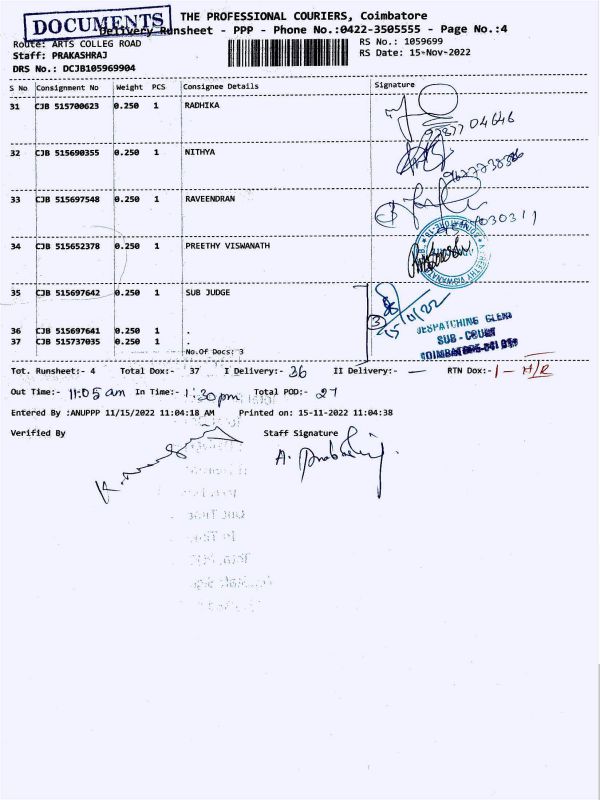 DOCUMENTS
THE PROFESSIONAL COURIERS, Coimbatore
Delivery Runsheet - PPP - Phone No.:0422-3505555 - Page No.:4
Route: ARTS COLLEG ROAD
RS No.: 1059699
Staff: PRAKASHRAJ
RS Date: 15-Nov-2022
DRS No.: DCJB105969904
S No Consignment No Weight PCS Consignee Details Signature
31 CJB 515700623 0.250 1 RADHIKA
04646
32 CJB 515690355 0.250 1 NITHYA
33 CJB 515697548 0.250 1 RAVEENDRAN
34 CJB 515652378 0.250 1 PREETHY VISWANATH
35 CJB 515697642 0.250 1 SUB JUDGE
36 CJB 515697641 0.250 1 .
37 CJB 515737035 0.250 1 .
No.Of Docs: 3
3
DESPATCHING CLERK
SUB - COURT
Tot. Runsheet:- 4 Total Dox:- 37 I Delivery:- 36 II Delivery:- — RTN Dox:- 1 -
Out Time:- 11:05 am In Time:- 1:30pm Total POD:- 27
Entered By :ANUPPP 11/15/2022 11:04:18 AM Printed on: 15-11-2022 11:04:38
Verified By Staff Signature